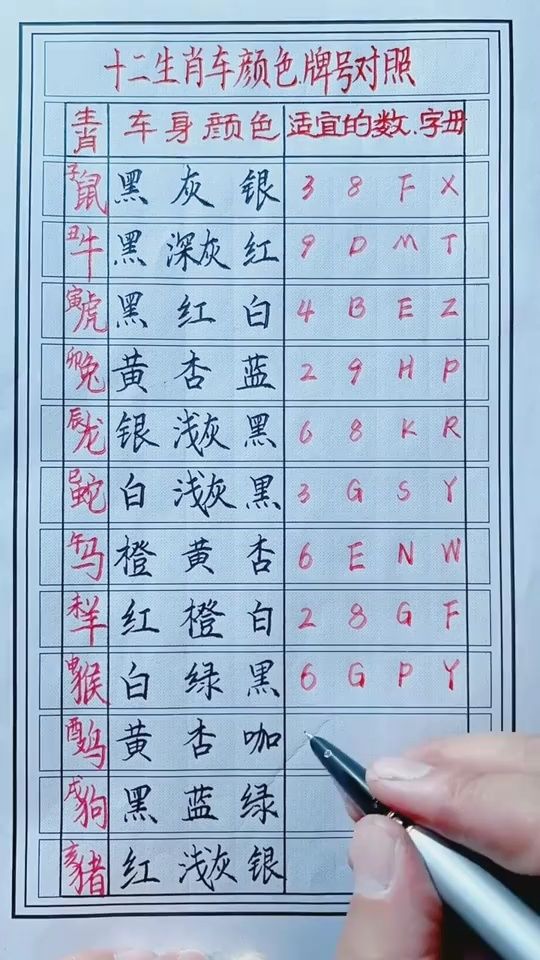 十二生肖车颜色.牌号对照
生肖 车身颜色 适宜的数.字母
子鼠 黑 灰 银 3 8 F X
丑牛 黑 深灰 红 9 D M T
寅虎 黑 红 白 4 B E Z
卯兔 黄 杏 蓝 2 9 H P
辰龙 银 浅灰 黑 6 8 K R
巳蛇 白 浅灰 黑 3 G S Y
午马 橙 黄 杏 6 E N W
未羊 红 橙 白 2 8 G F
申猴 白 绿 黑 6 G P Y
酉鸡 黄 杏 咖
戌狗 黑 蓝 绿
亥猪 红 浅灰 银